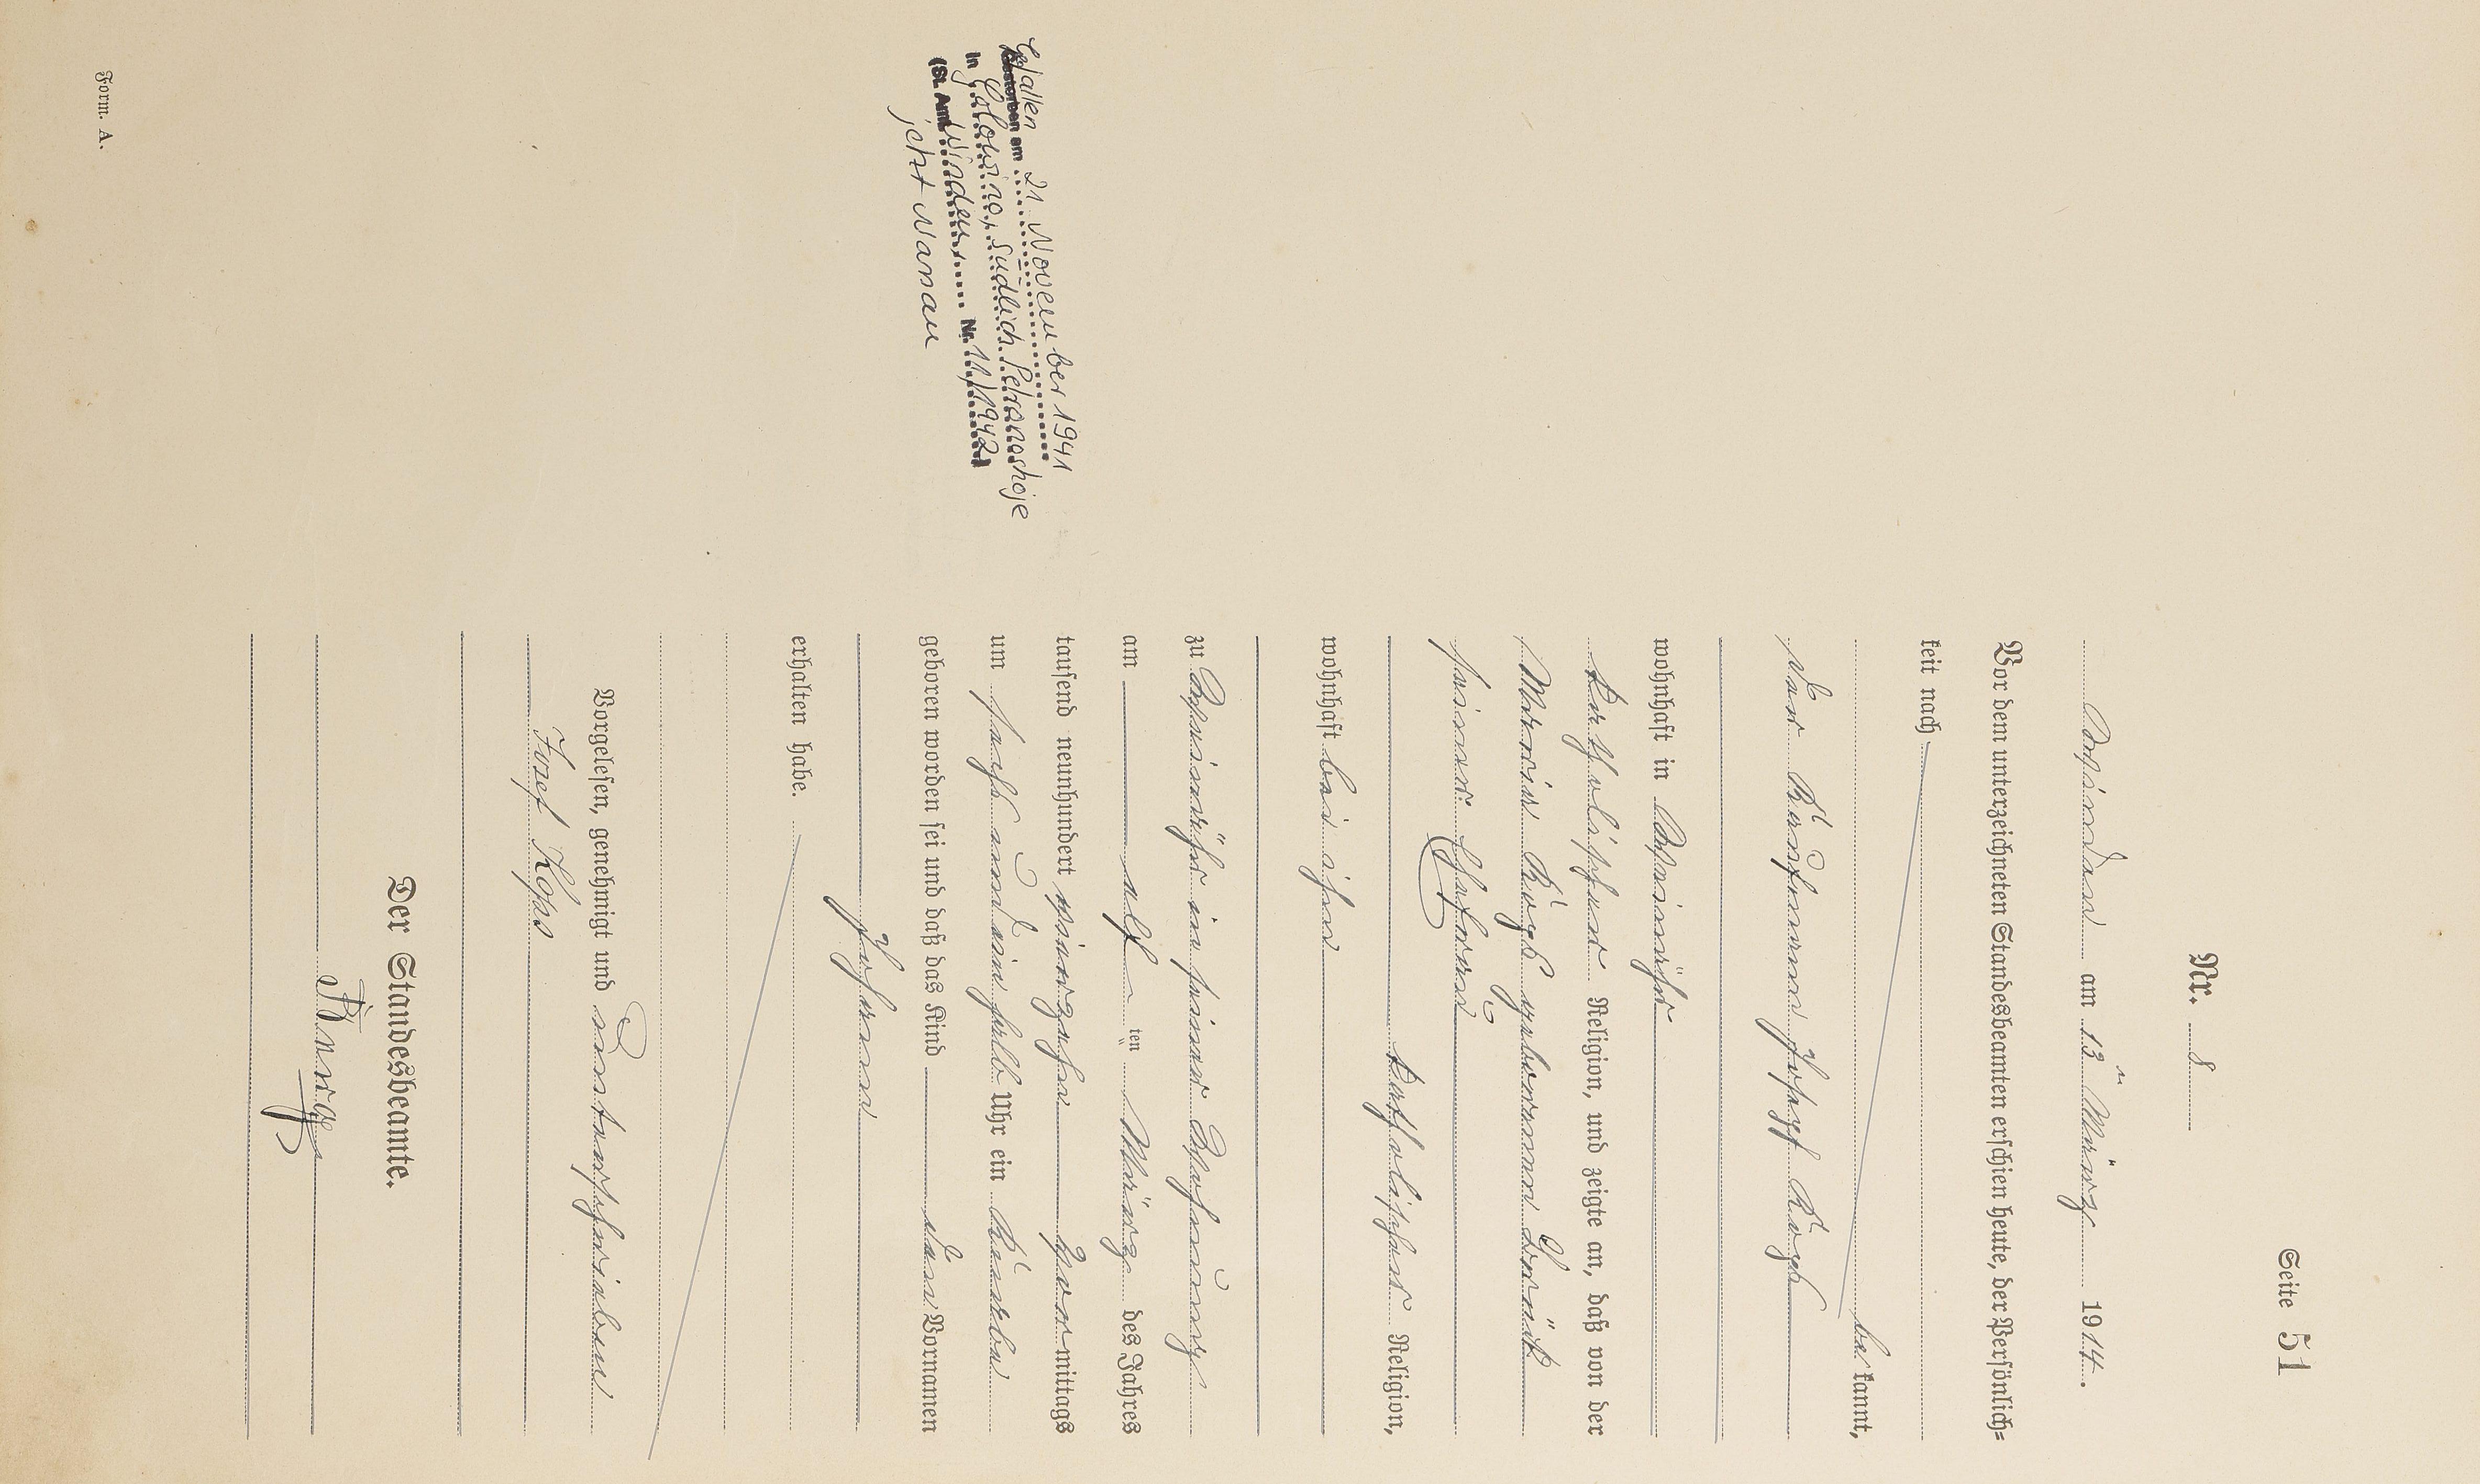 Seite 51
Nr. 8
Winden am 13ten März 1914.
Vor dem unterzeichneten Standesbeamten erschien heute, der Persönlich=
keit nach
be kannt,
der Joseph
wohnhaft in Weinähr
katholischer Religion, und zeigte an, daß von der
Maria geborenen
seiner Ehefrau
katholischer Religion,
wohnhaft bei ihm
zu Weinähr in seiner Wohnung
am elf ten März des Jahres
tausend neunhundert vierzehn Vor mittags
um sechs und ein halb Uhr ein Knabe
geboren worden sei und daß das Kind den Vornamen
Johann
erhalten habe.
Vorgelesen, genehmigt und unterschrieben
Josef
Der Standesbeamte.
Gefallen
Gestorben am 21. November 1941
in Golowino, südlich
(St. Amt Winden Nr. 11/1942)
jetzt Nassau
Form. A.